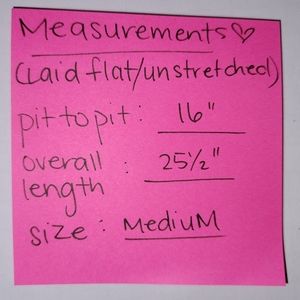 Measurements♡
(Laid flat/unstretched)
pit to pit: 16"
overall length: 25½"
size: Medium